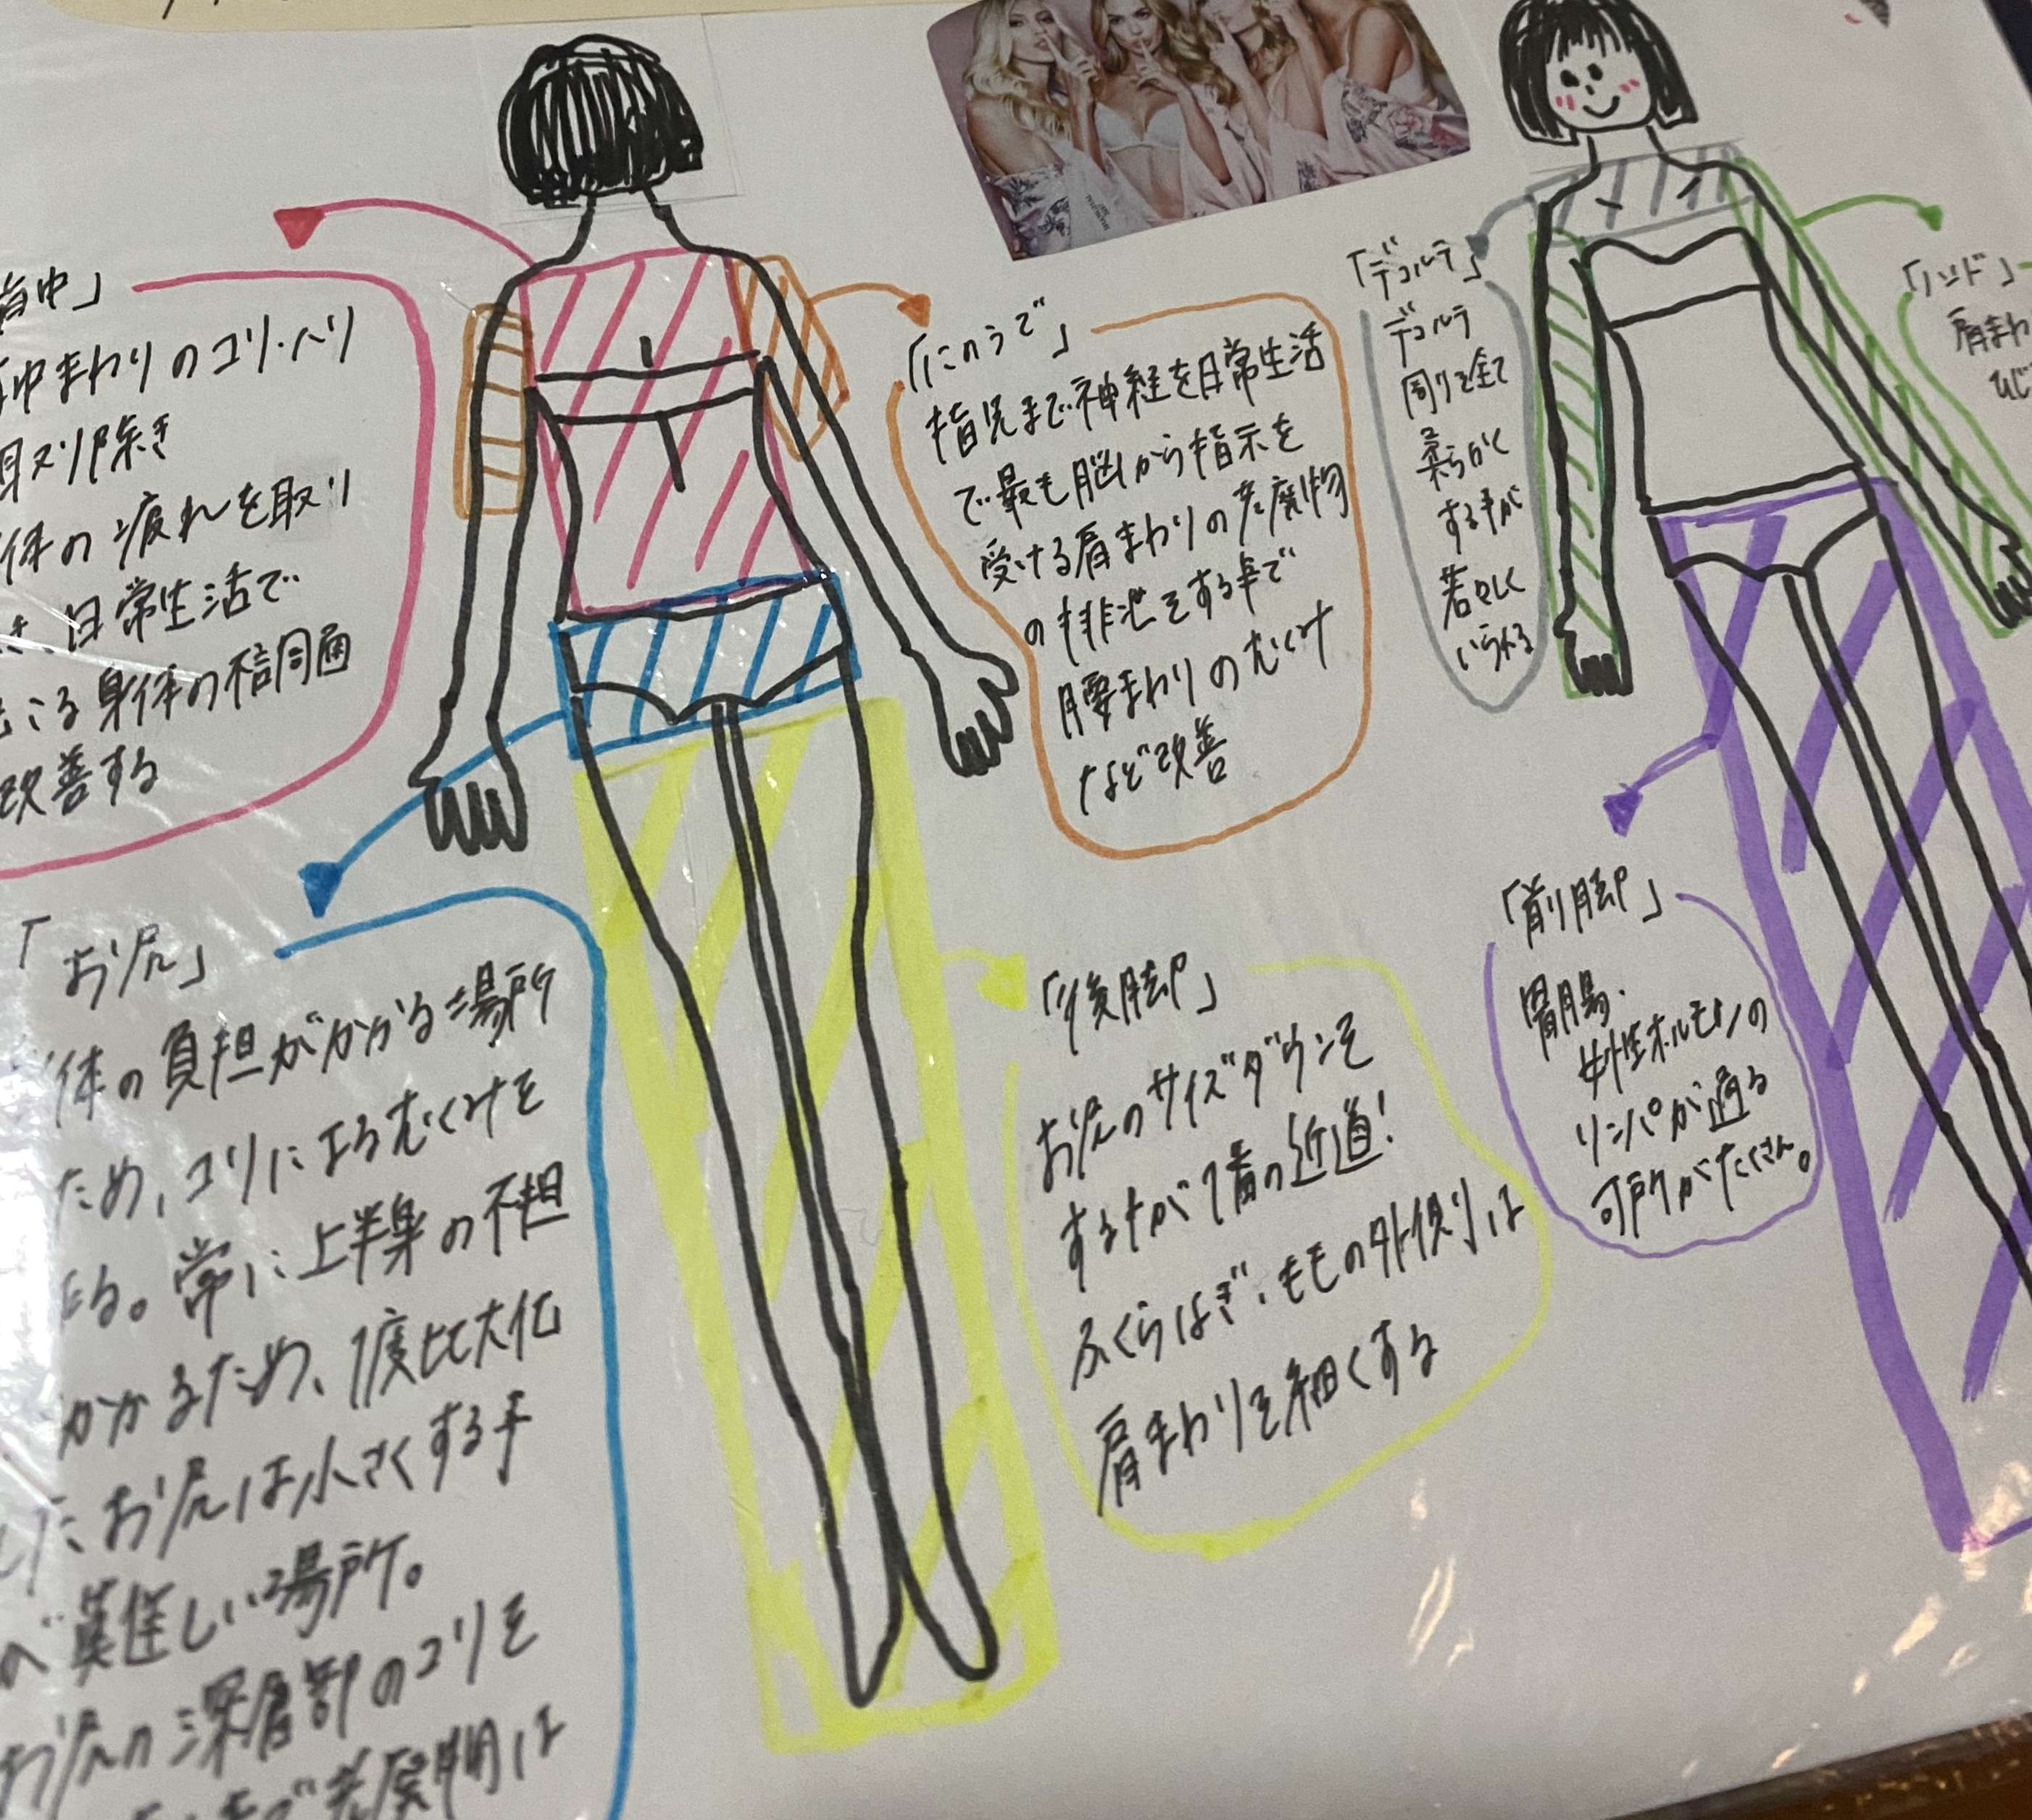 背中」
背中まわりのコリ・ハリ
取り除き
体の疲れを取り
日常生活で
こる身体の不
改善する
「にのうで」
指先まで神経を日常生活
で最も脳から指示を
受ける肩まわりの老廃物
の排泄をする事で
腰まわりのむくみ
など改善
「デコルテ」
デコルテ
周りを全て
柔らかく
する事が
若々しく
いられる
「ハンド」
肩まわ
ひじ
「お尻」
体の負担がかかる場所
ため、コリによるむくみを
る。常に上半身の不担
かかるため、1度比大化
したお尻は小さくする手
が難しい場所。
お尻の深層部のコリを
「後脚」
お尻のサイズダウンを
するがが1番の近道!
ふくらはぎ・ももの外側は
肩まわりを細くする
「前脚」
胃腸・
女性ホルモンの
リンパが通る
可所がたくさん。